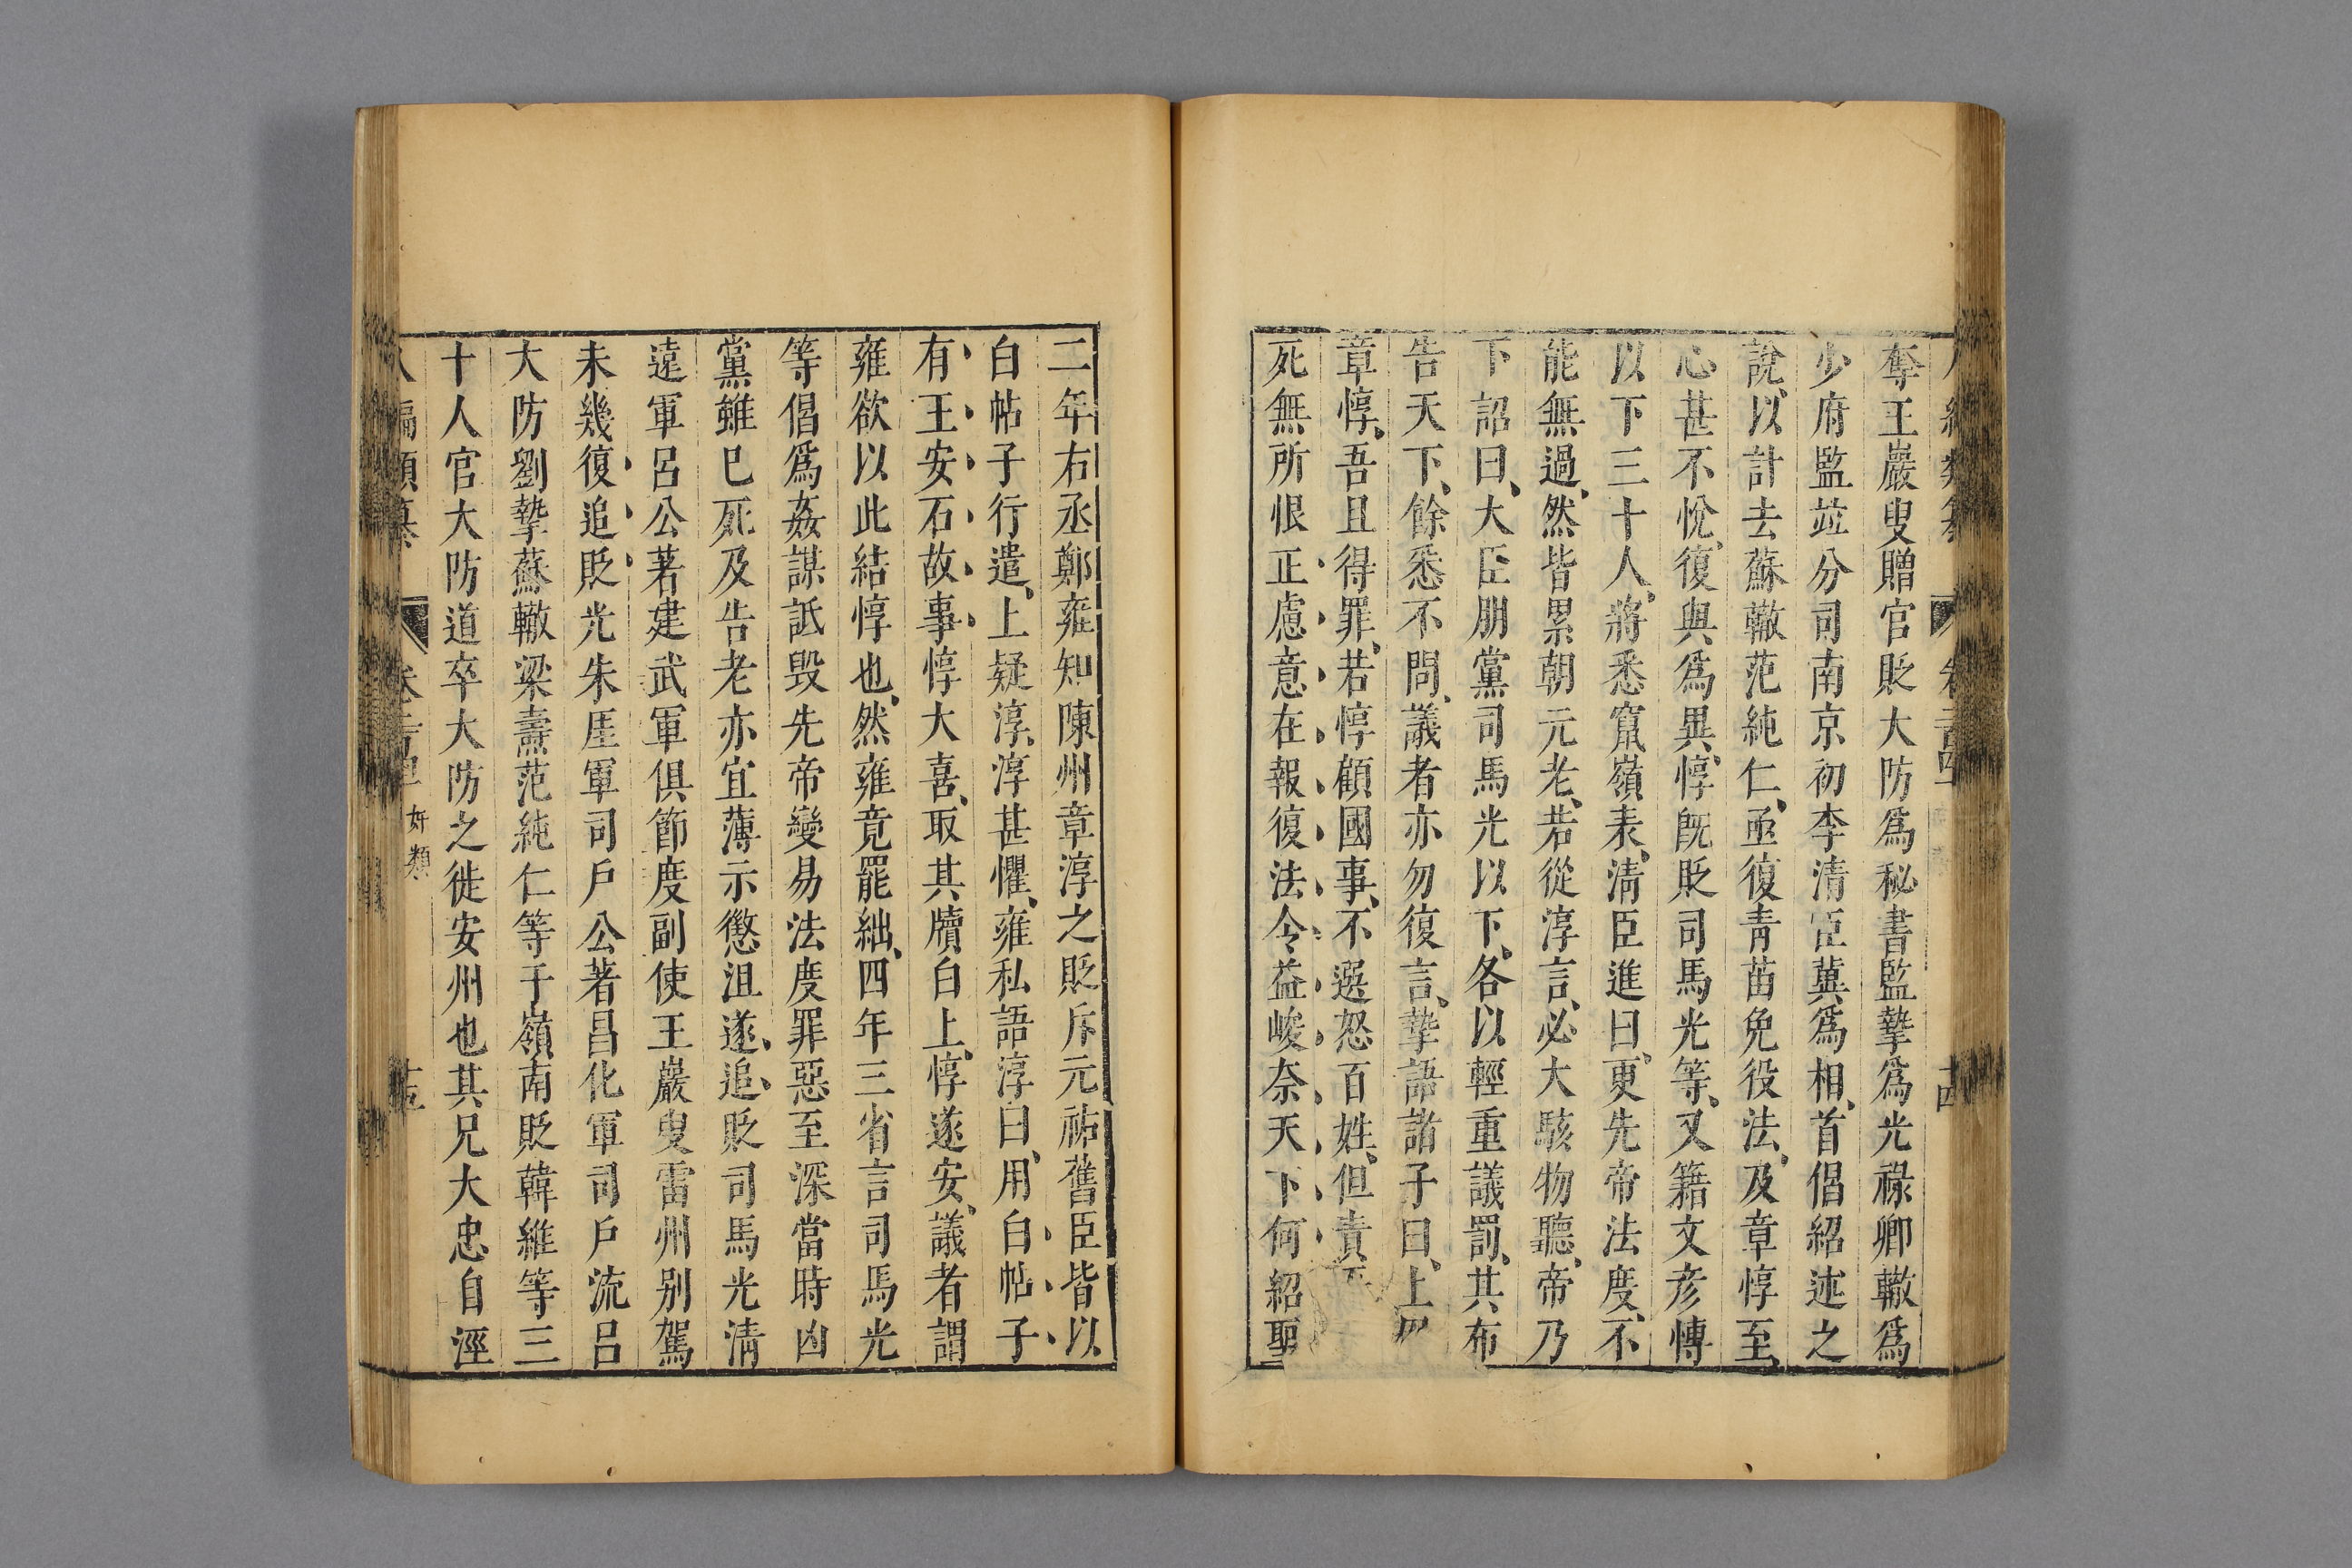 奪王巖叟贈官貶大防爲秘書監摯爲光祿卿轍爲
少府監竝分司南京初李清臣冀爲相首倡紹述之
說以計去蘇轍范純仁亟復青苗免役法及章惇至
心甚不悅復與爲異惇既貶司馬光等又籍文彥博
以下三十人將悉竄嶺表清臣進曰更先帝法度不
能無過然皆累朝元老若從淳言必大駭物聽帝乃
下詔曰大臣朋黨司馬光以下各以輕重議罰其布
告天下餘悉不問議者亦勿復言摯語諸子曰上
章惇吾且得罪若惇顧國事不遷怒百姓但責
死無所恨正慮意在報復法令益峻奈天下何紹聖
二年右丞鄭雍知陳州章淳之貶斥元祐舊臣皆以
白帖子行遣上疑淳淳甚懼雍私語淳曰用白帖子
有王安石故事惇大喜取其牘白上惇遂安議者謂
雍欲以此結惇也然雍竟罷絀四年三省言司馬光
等倡爲姦謀詆毀先帝變易法度罪惡至深當時凶
黨雖已死及告老亦宜薄示懲沮遂追貶司馬光清
遠軍呂公著建武軍俱節度副使王巖叟雷州别駕
未幾復追貶光朱厓軍司戶公著昌化軍司戶流呂
大防劉摯蘇轍梁燾范純仁等于嶺南貶韓維等三
十人官大防道卒大防之徙安州也其兄大忠自涇
奸類